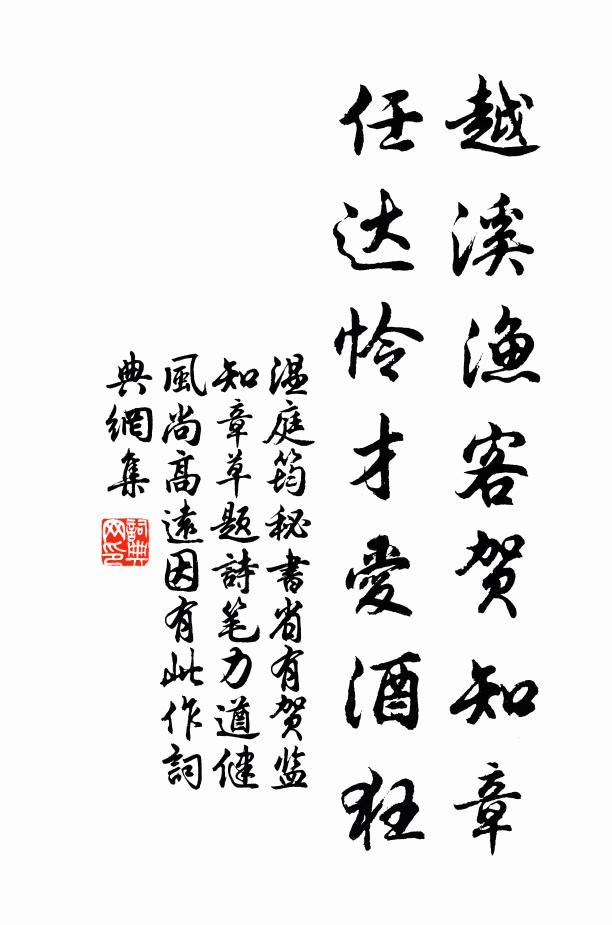 越溪渔客贺知章
任达怜才爱酒狂
温庭筠秘書省有贺监
知章草题詩笔力遒健
風尚高遠因有此作詞
典網集
詞典网印